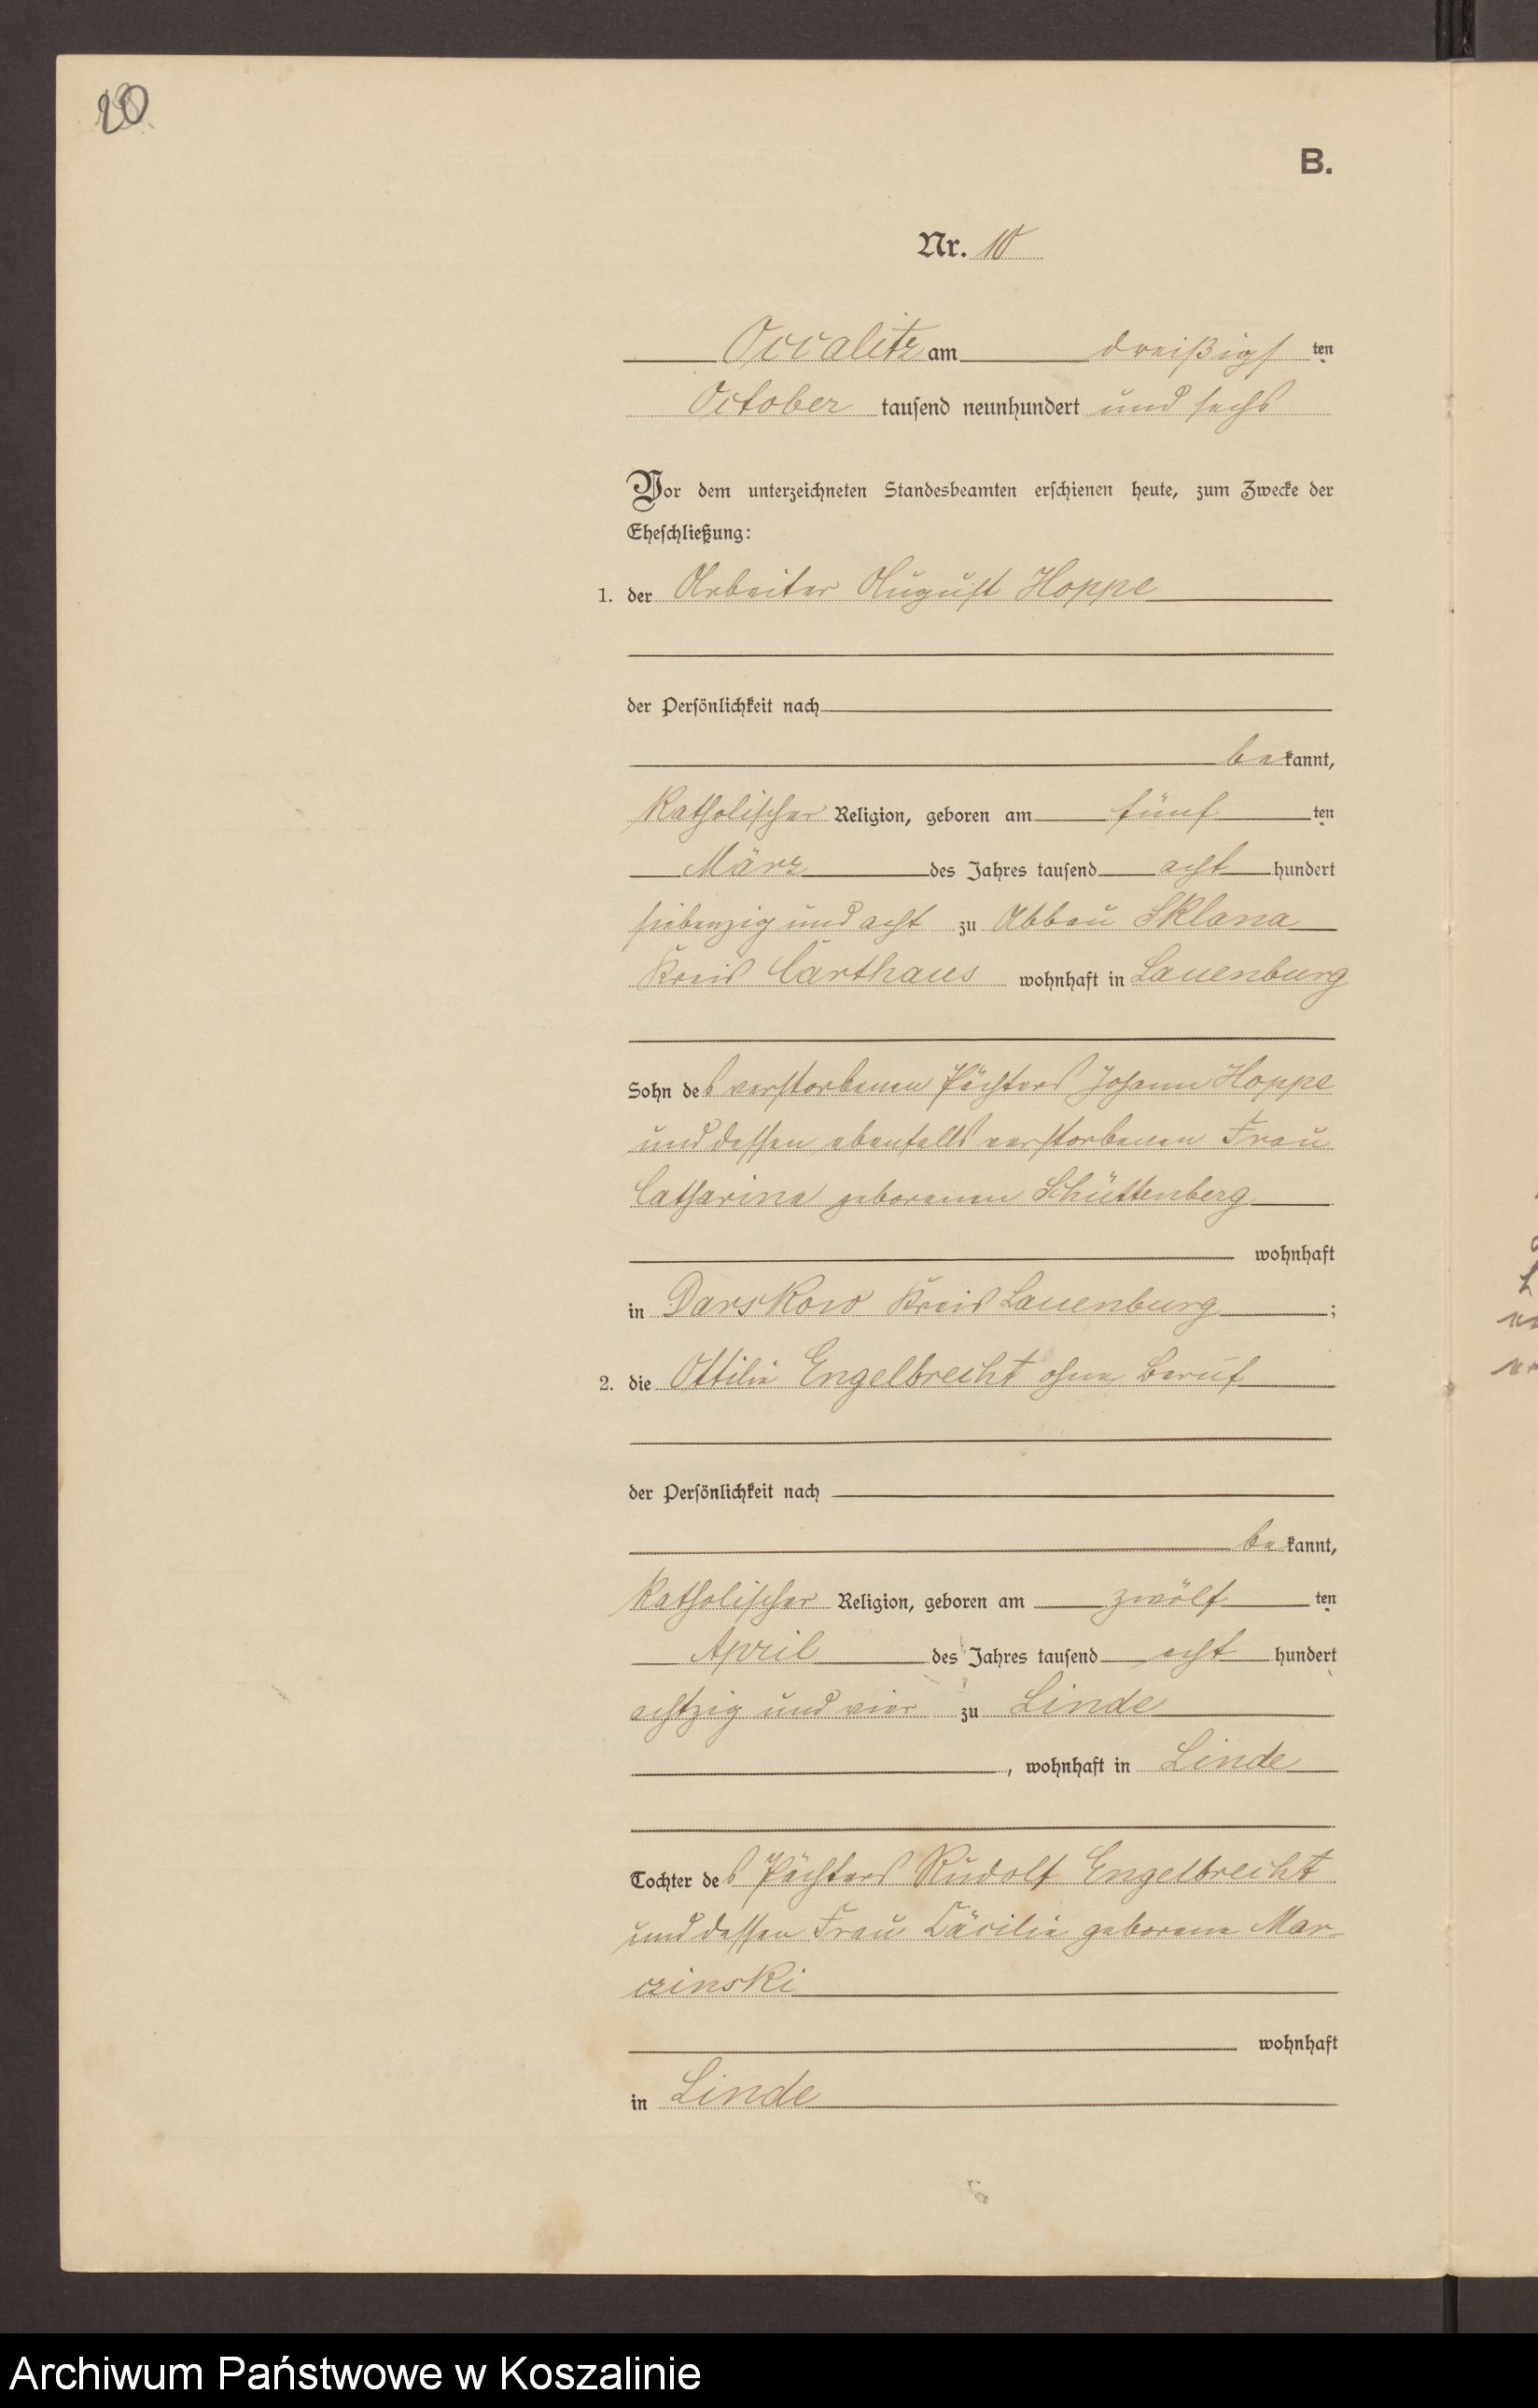 20
B.
Nr. 10
Occalitz am dreißigsten
October tausend neunhundert und sechs
Vor dem unterzeichneten Standesbeamten erschienen heute, zum Zwecke der
Eheschließung:
1. der Arbeiter August Hoppe
der Persönlichkeit nach
bekannt,
katholischer Religion, geboren am fünften
März des Jahres tausend acht hundert
siebenzig und acht zu Abbau Sklana
Kreis Carthaus wohnhaft in Lauenburg
Sohn des verstorbenen Pächters Johann Hoppe
und dessen ebenfalls verstorbenen Frau
Catharina geborenen Schüttenberg
wohnhaft
in Darskow Kreis Lauenburg ;
2. die Ottilie Engelbrecht ohne Beruf
der Persönlichkeit nach
bekannt,
katholischer Religion, geboren am zwölften
April des Jahres tausend acht hundert
achtzig und vier zu Linde
, wohnhaft in Linde
Tochter des Pächters Rudolf Engelbrecht
und dessen Frau Cäcilie geborene Mar-
czinski
wohnhaft
in Linde
Archiwum Państwowe w Koszalinie